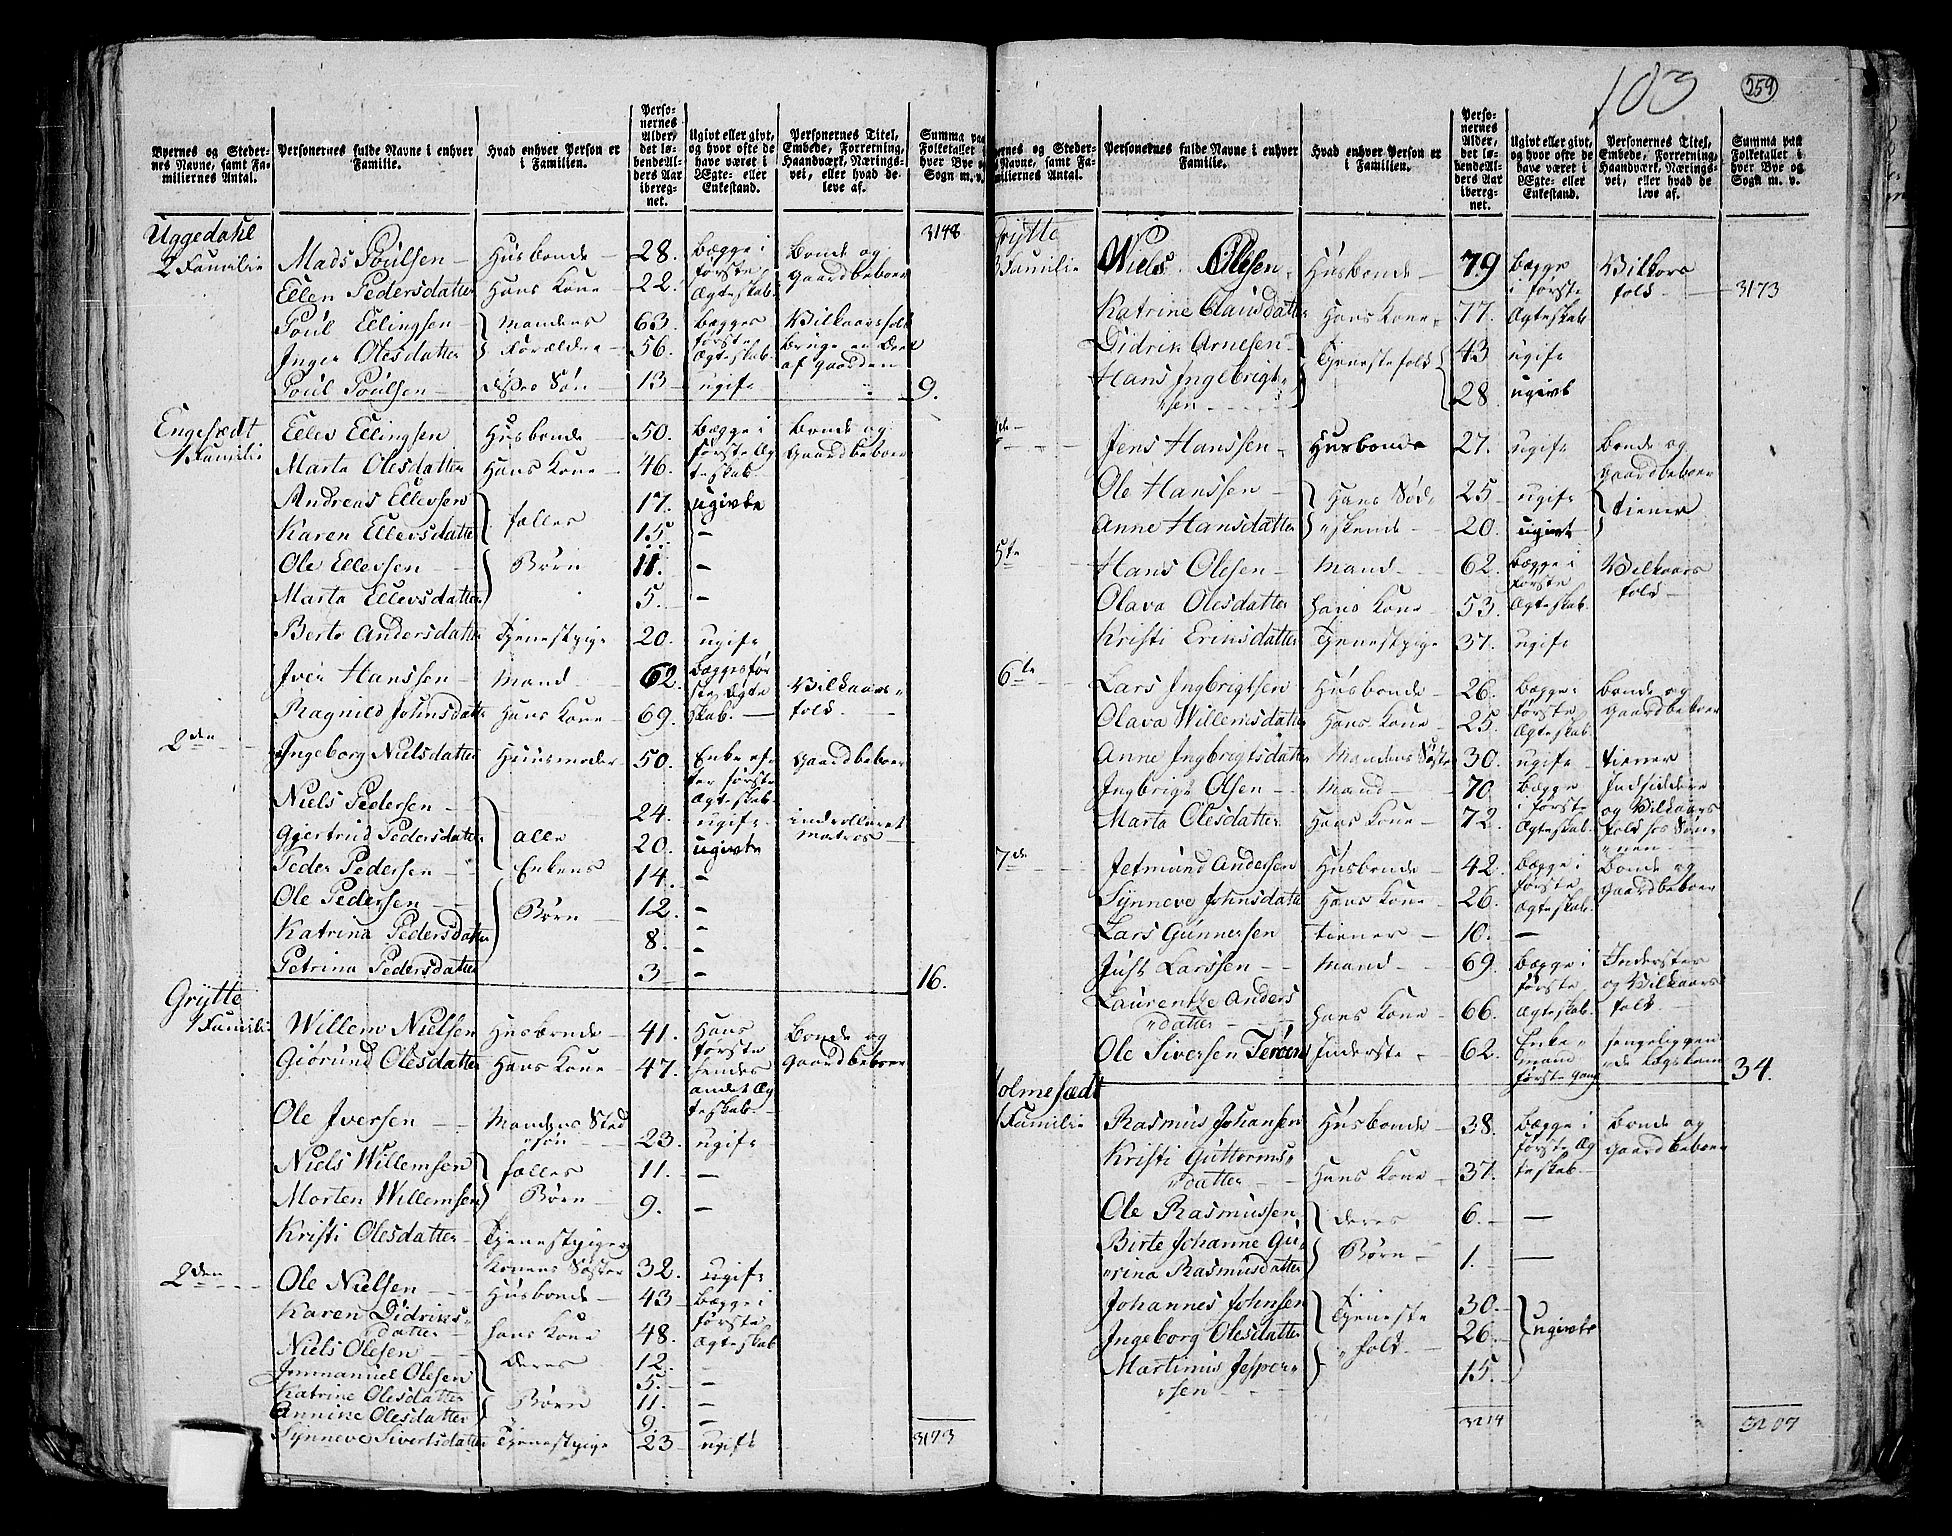 103
259
Byernes og Stedernes Navne, samt Familiernes Antal.
Personernes fulde Navne i enhver Familie.
Hvad enhver Person er i Familien.
Personernes Alder, det løbende Alders Aar iberegnet.
Ugivt eller givt, og hvor ofte de have været i Ægte- eller Enkestand.
Personernes Titel, Embede, Forretning, Haandværk, Næringsvei, eller hvad de leve af.
Summa paa Folketallet i hver Bye og Sogn m. v.
3148
Uggedahl
2 Familie Mads Poulsen Husbonde 28. Bægge i første Ægteskab Bonde og Gaardbeboer
Ellen Pedersdatter Hans Kone 22.
Poul Ellingsen Mandens 63. Bægges første Ægteskab Vilkaarsfolk
Inger Olesdatter Forældre 56. Bruge en Deel af Gaarden
Poul Poulsen Søn 13 ugift 9.
Engesædt
1 Familie Ellev Ellingsen Husbonde 50. Bægge i første Ægteskab Bonde og Gaardbeboer
Marta Olesdatter Hans Kone 46.
Andreas Ellevsen fælles 17. ugivte
Karen Ellevsdatter 15. —
Ole Ellevsen Børn 11. —
Marta Ellevsdatter 5. —
Berte Andersdatter Tjenestpige 20. ugift
Iver Hanssen Mand 62. Bægges første Ægteskab Vilkaarsfolk
Ragnild Johnsdatter Hans Kone 69.
2den Ingeborg Nielsdatter Huusmoder 50. Enke efter første Ægteskab Gaardbeboer
Niels Pedersen alle 24. ugift inrolleret Matros
Gjertrud Pedersdatter 20. ugivte
Peder Pedersen Enkens 14. —
Ole Pedersen Børn 12. —
Katrina Pedersdatter 8. —
Petrina Pedersdatter 3 — 16.
Grytte
1 Familie Willem Nielsen Husbonde 41. Hans første Bonde og Gaardbeboer
Giørund Olesdatter Hans Kone 47. hendes andet Ægteskab
Ole Iversen Mandens Stedsøn 23. ugift
Niels Willemsen fælles 11. —
Morten Willemsen Børn 9. —
Kristi Olesdatter Tjenestpige og Konens Søster 32. ugift
2den Ole Nielsen Husbonde 43 Bægge i første Ægteskab
Karen Didriksdatter Hans Kone 48.
Niels Olesen Deres 12. —
Immanuel Olesen 5. —
Katrine Olesdatter Børn 11. —
Annike Olesdatter 9. —
Synneve Sivertsdatter Tjenestpige 23 ugift
3173
ernes og Steders Navne, samt Familiernes Antal.
Personernes fulde Navne i enhver Familie.
Hvad enhver Person er i Familien.
Personernes Alder, det løbende Alders Aar iberegnet.
Ugivt eller givt, og hvor ofte de have været i Ægte- eller Enkestand.
Personernes Titel, Embede, Forretning, Haandværk, Næringsvei, eller hvad de leve af.
Summa paa Folketallet i hver Bye og Sogn m. v.
Grytte
3 Familie Niels Olesen Husbonde 79 Bægge i første Ægteskab Vilkors folk 3173
Katrine Clausdatter Hans Kone 77.
Didrik Arnesen Tjenestefolk 43 ugift
Hans Ingebrigtsen 28 ugivt
Jens Hanssen Husbonde 27. ugift Bonde og Gaardbeboer
Ole Hanssen Hans Sødskende 25 ugift tiener
Anne Hansdatter 20. ugivt
5te Hans Olesen Mand 62. Bægge i første Ægteskab Vilkaars folk
Olava Olesdatter Hans Kone 53.
Kristi Eriksdatter Tjenestpige 37. ugift
6te Lars Ingbrigtsen Husbonde 26. Bægge i første Ægteskab Bonde og Gaardbeboer
Olava Willemsdatter Hans Kone 25.
Anne Ingbrigtsdatter Mandens Søster 30. ugift tiener
Ingbrigt Olsen Mand 70. Bægge i første Ægteskab Indsiddere og Vilkaarsfolk hos Sønnen
Marta Olesdatter Hans Kone 72.
7de Jetmund Andersen Husbonde 42. Bægge i første Ægteskab Bonde og Gaardbeboer
Synneve Johnsdatter Hans Kone 26.
Lars Gunnersen tiener 10. —
Just Larssen Mand 69. Bægge i første Ægteskab Inderster og Vilkaars folk
Laurentze Andersdatter Hans Kone 66.
Ole Siversen Inderste 62. Enkemand første Gang sengeliggende 34.
olmesædt
1 Familie Rasmus Johansen Husbonde 38. Bægge i første Ægteskab Bonde og Gaardbeboer
Kristi Guttormsdatter Hans Kone 37.
Ole Rasmussen Deres 6. —
Birte Johanne Gurina Rasmusdatter Børn 1. —
Johannes Johnsen Tjeneste 30. ugivte
Ingeborg Olesdatter folk 26.
Martinus Jespersen 15.
3214
3207